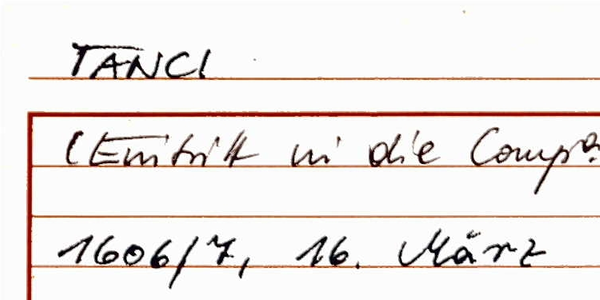 TANCI
(Eintritt in die Comp.a
1606/7, 16. März